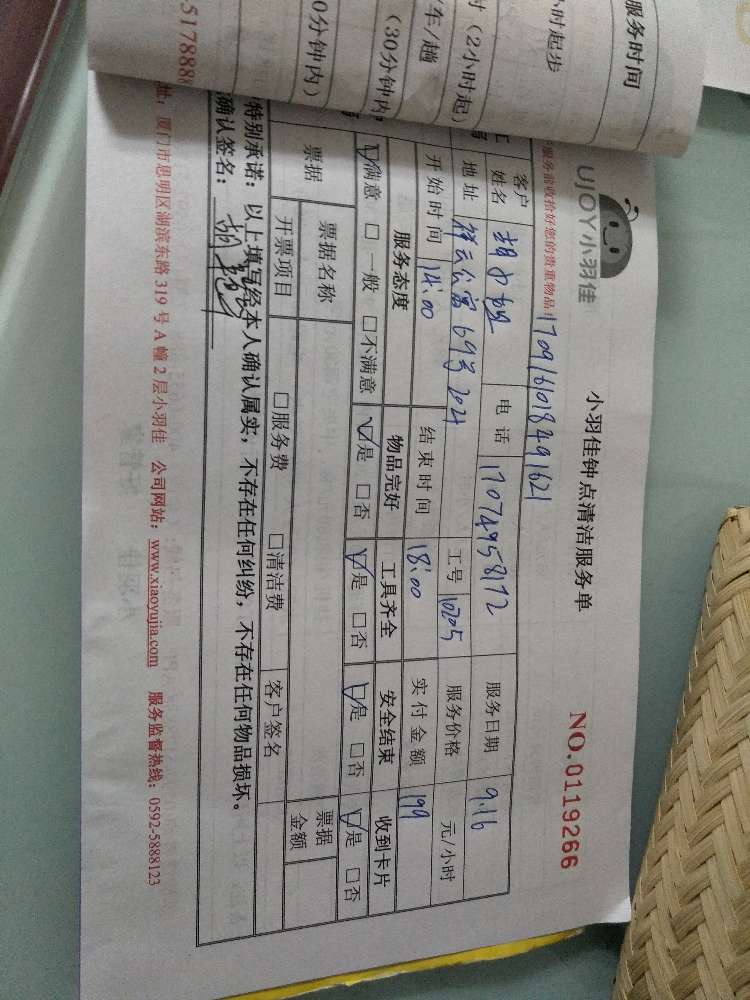 服务时间
小时起步
时（2小时起）
/车/趟
（30分钟内
0分钟内）
5178888
UJOY小羽佳
小羽佳钟点清洁服务单
NO.0119266
服务前收拾好您的贵重物品!
1709161018491621
客户姓名 电话 17074958172 服务日期 9.16
地址 祥云公寓69号202 工号 10205 服务价格 元/小时
开始时间 14:00 结束时间 18:00 实付金额 199
服务态度 物品完好 工具齐全 安全结束 收到卡片
☑满意 □一般 □不满意 ☑是 □否 ☑是 □否 ☑是 □否 ☑是 □否
票据 票据名称 票据金额
开票项目 □服务费 □清洁费 客户签名
特别承诺：以上填写经本人确认属实，不存在任何纠纷，不存在任何物品损坏。
确认签名：
址：厦门市思明区湖滨东路319号A幢2层小羽佳 公司网站：www.xiaoyujia.com 服务监督热线：0592-5888123